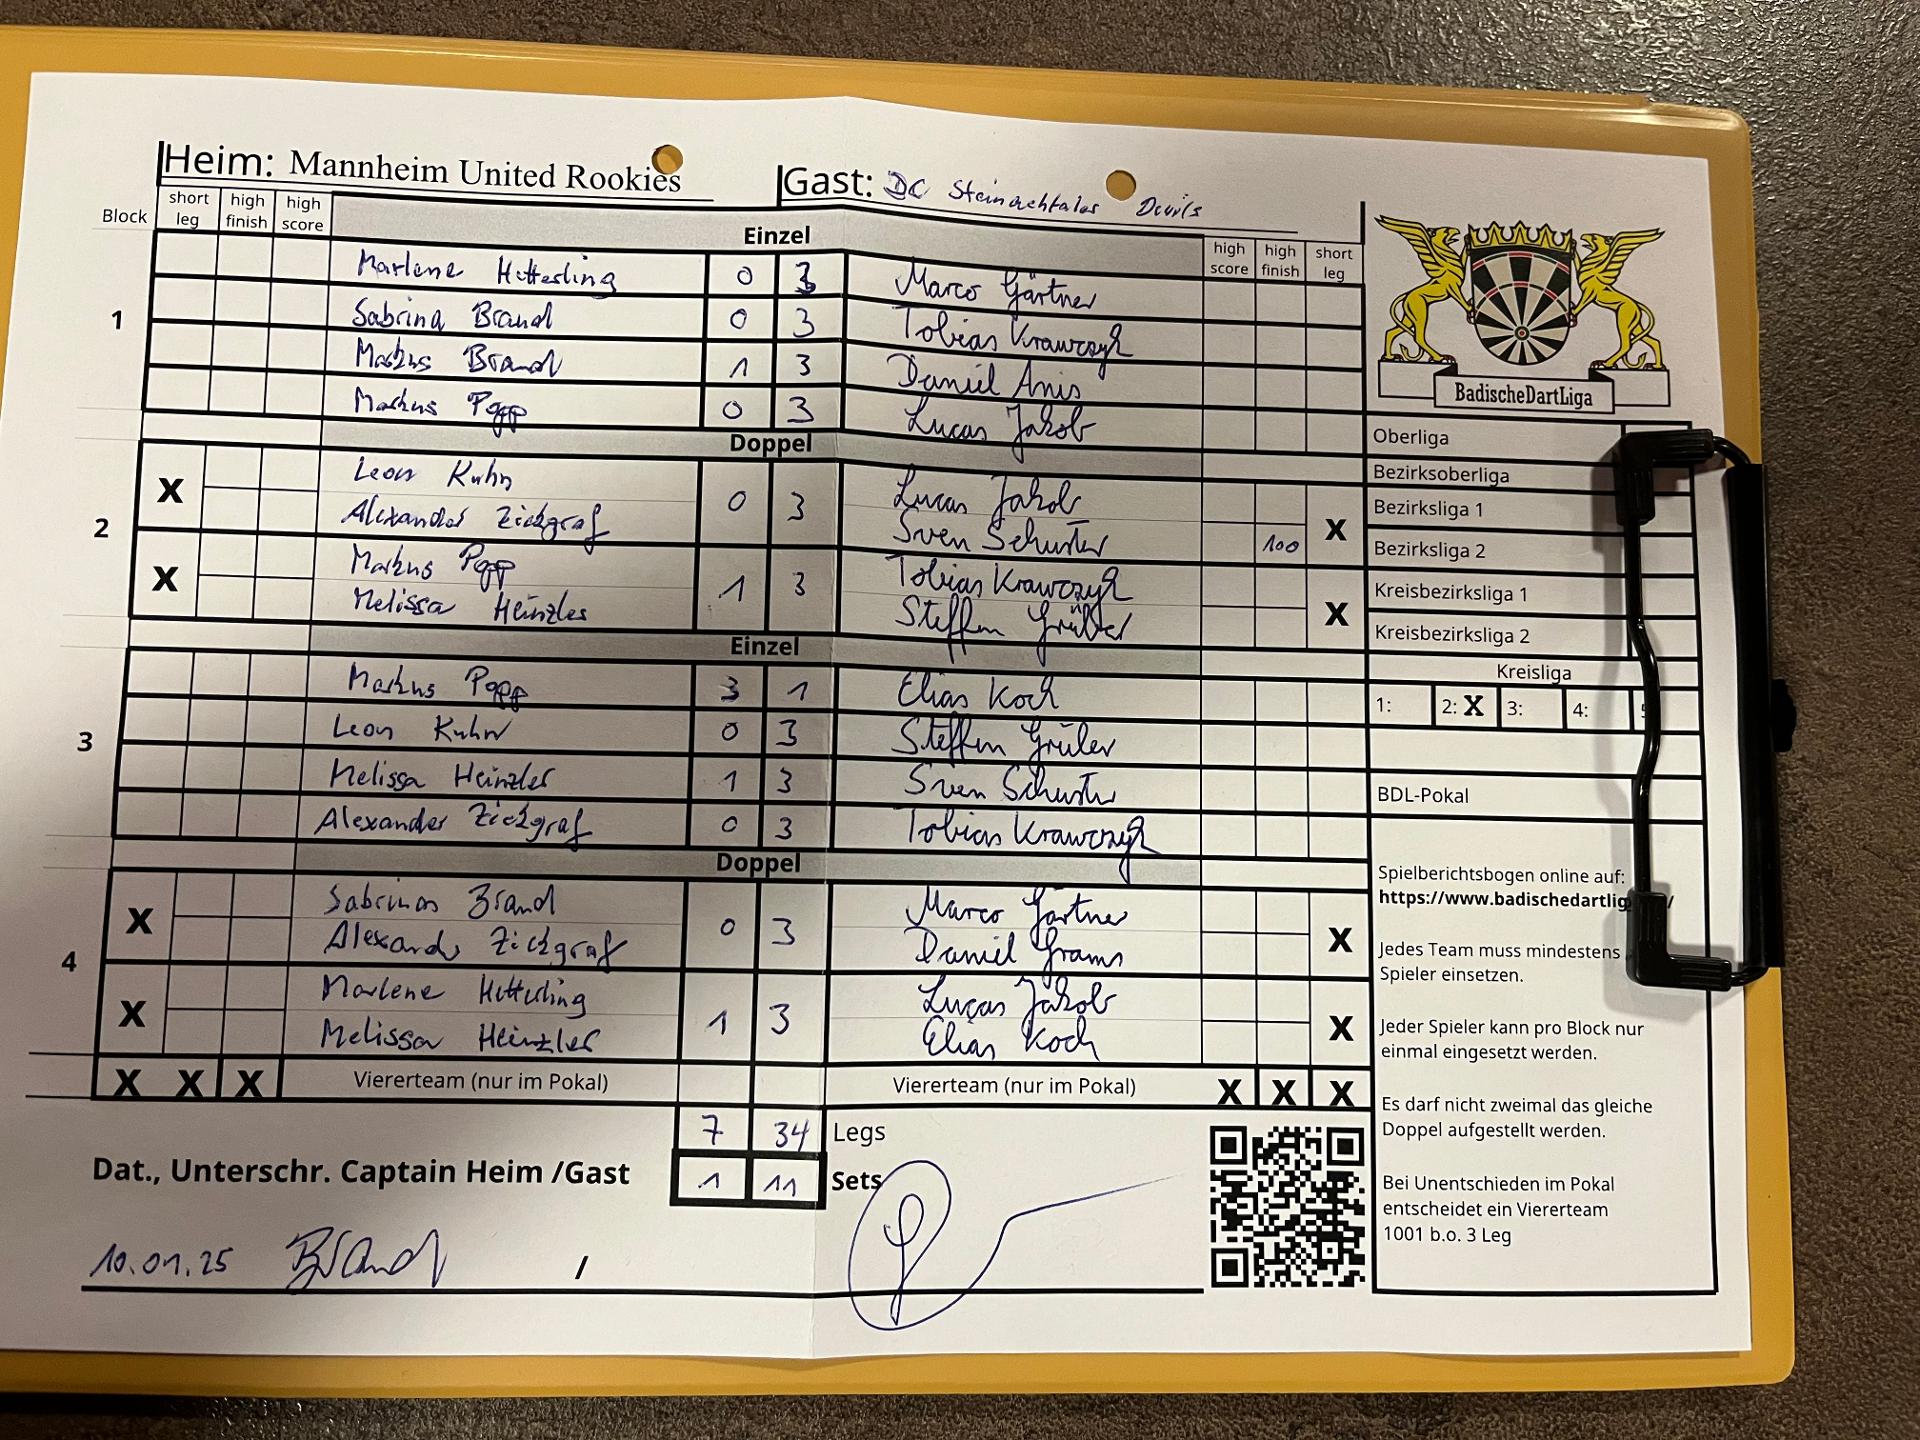 Heim: Mannheim United Rookies
Gast: DC Steinachtaler Devils
Block short leg high finish high score Einzel high score high finish short leg
1
Marlene Hütterling 0 3 Marco Gärtner
Sabrina Brand 0 3 Tobias Krawczyk
Markus Brand 1 3 Daniel Anis
Markus Popp 0 3 Lucas Jakob
Doppel
2
X Leon Kuhn 0 3 Lucas Jakob X
Alexander Zickgraf Sven Schuster 100
X Markus Popp 1 3 Tobias Krawczyk X
Melissa Heinzler Steffen Grüber
Einzel
3
Markus Popp 3 1 Elias Koch
Leon Kuhn 0 3 Steffen Grüber
Melissa Heinzler 1 3 Sven Schuster
Alexander Zickgraf 0 3 Tobias Krawczyk
Doppel
4
X Sabrina Brand 0 3 Marco Gärtner X
Alexander Zickgraf Daniel Grams
X Marlene Hütterling 1 3 Lucas Jakob X
Melissa Heinzler Elias Koch
X X X Viererteam (nur im Pokal) Viererteam (nur im Pokal) X X X
7 34 Legs
Dat., Unterschr. Captain Heim /Gast 1 11 Sets
10.01.25 Brand /
BadischeDartLiga
Oberliga
Bezirksoberliga
Bezirksliga 1
Bezirksliga 2
Kreisbezirksliga 1
Kreisbezirksliga 2
Kreisliga
1: 2: X 3: 4:
BDL-Pokal
Spielberichtsbogen online auf:
https://www.badischedartlig
Jedes Team muss mindestens
Spieler einsetzen.
Jeder Spieler kann pro Block nur
einmal eingesetzt werden.
Es darf nicht zweimal das gleiche
Doppel aufgestellt werden.
Bei Unentschieden im Pokal
entscheidet ein Viererteam
1001 b.o. 3 Leg